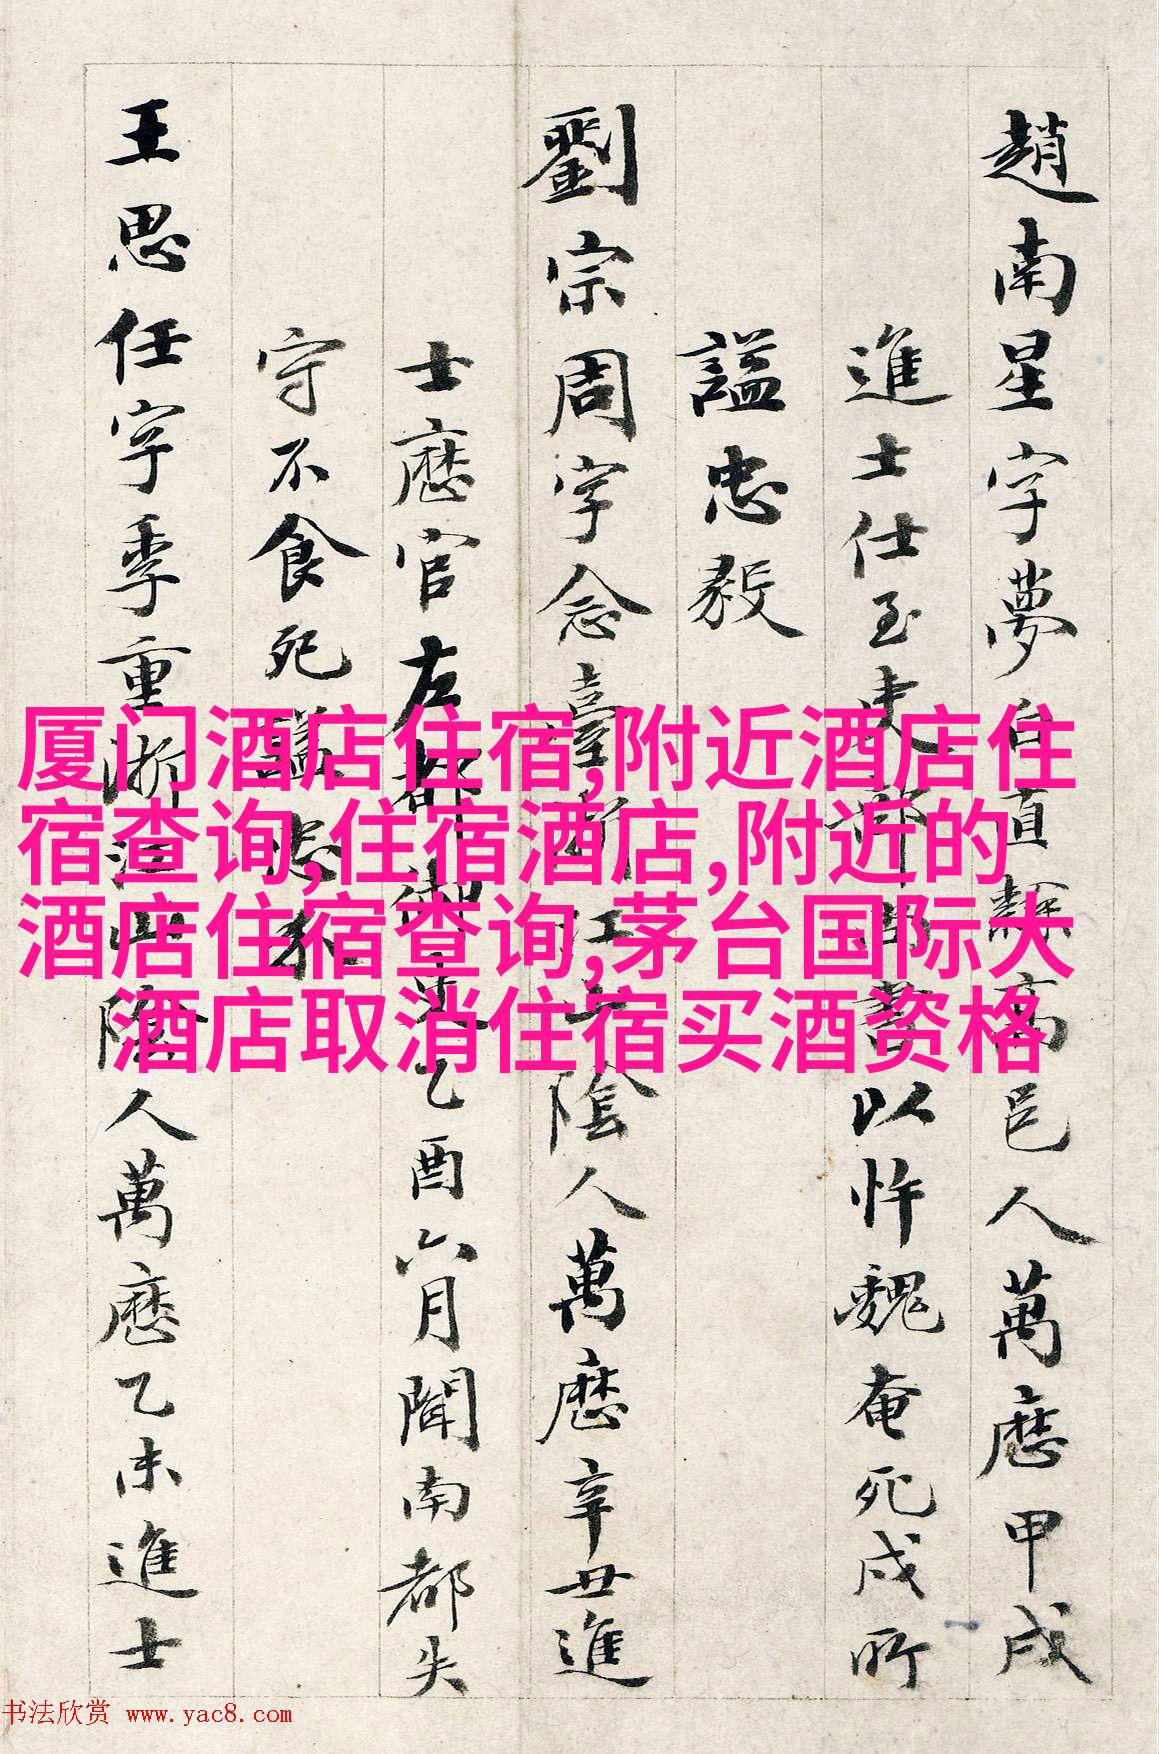 趙南星字夢白直隸高邑人萬曆甲戌
進士仕至吏部尚書以忤魏奄死戍所
謚忠毅
劉宗周字念臺浙江山陰人萬曆辛丑進
士歷官左都御史乙酉六月聞南都失
守不食死謚忠
王思任字季重浙江山陰人萬曆乙未進士
厦门酒店住宿,附近酒店住
宿查询,住宿酒店,附近的
酒店住宿查询,茅台国际大
酒店取消住宿买酒资格
书法欣赏 www.yac8.com